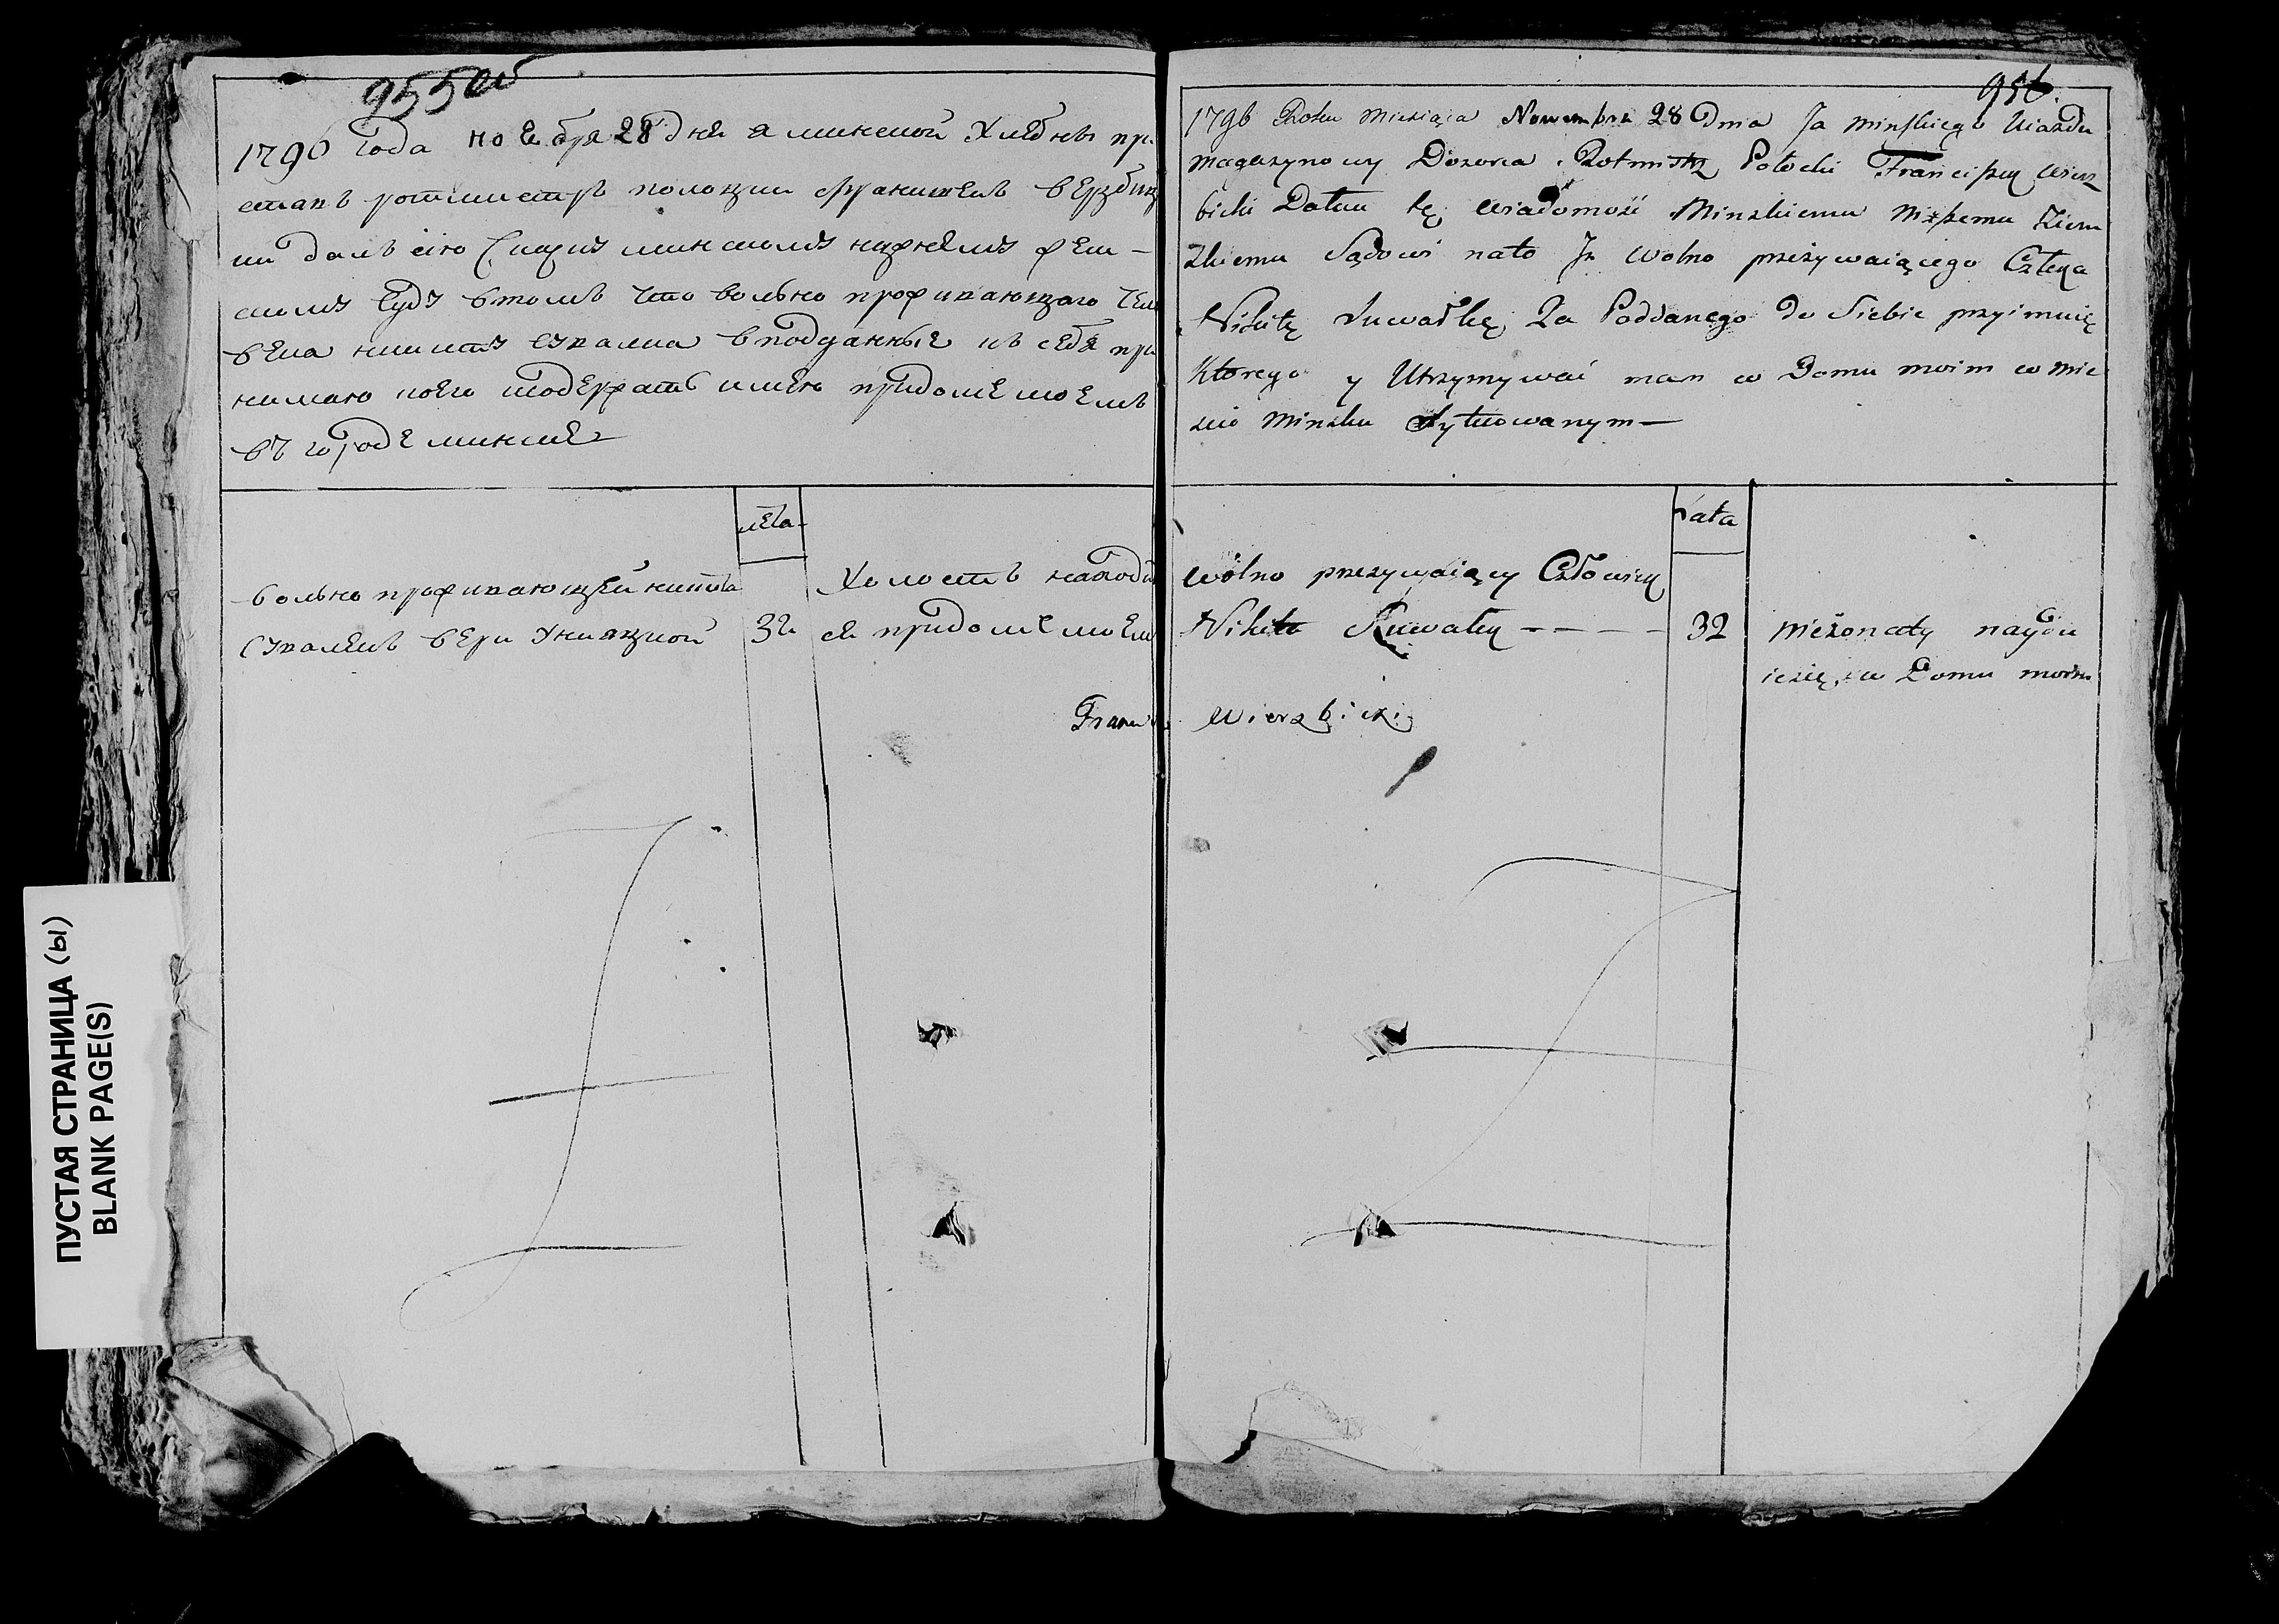 955
1796 года ноебря 28 дня я минской хлебны при
ставъ ротмистръ полоцкии Францишекъ Верзбиц
ки далъ сию минскому нижнему зем-
скому суду втомъ что вольно проживающаго чело
века никиту вподданные къ себе при
нимаю коего содержать имею придоме моемъ
въ городе минске
лета
вольно проживающей никита
веры униацкой
32
холостъ находи
ся придоме моем
956.
1796 Roku Miesiąca Nowembra 28 Dnia Ja Minskiego Uiazdu
Magazynowy Dozorca Rotmistrz Połocki Franciszek Wierz
bicki Dałem tę wiadomość Minskiemu Niższemu Ziem
skiemu Sądowi na to Iż wolno przeżywaiącego Człeka
Nikitę Za Poddanego do Siebie przyimuię
Ktorego y Utrzymywać mam w Domu moim w mie
scie Minsku Sytuowanym —
Łata
wolno przezywaiący Człowiek
Nikita - - - -
32
nieżonaty nayduie
się w Domu moim
Franci Wierzbicki
ПУСТАЯ СТРАНИЦА (Ы)
BLANK PAGE(S)